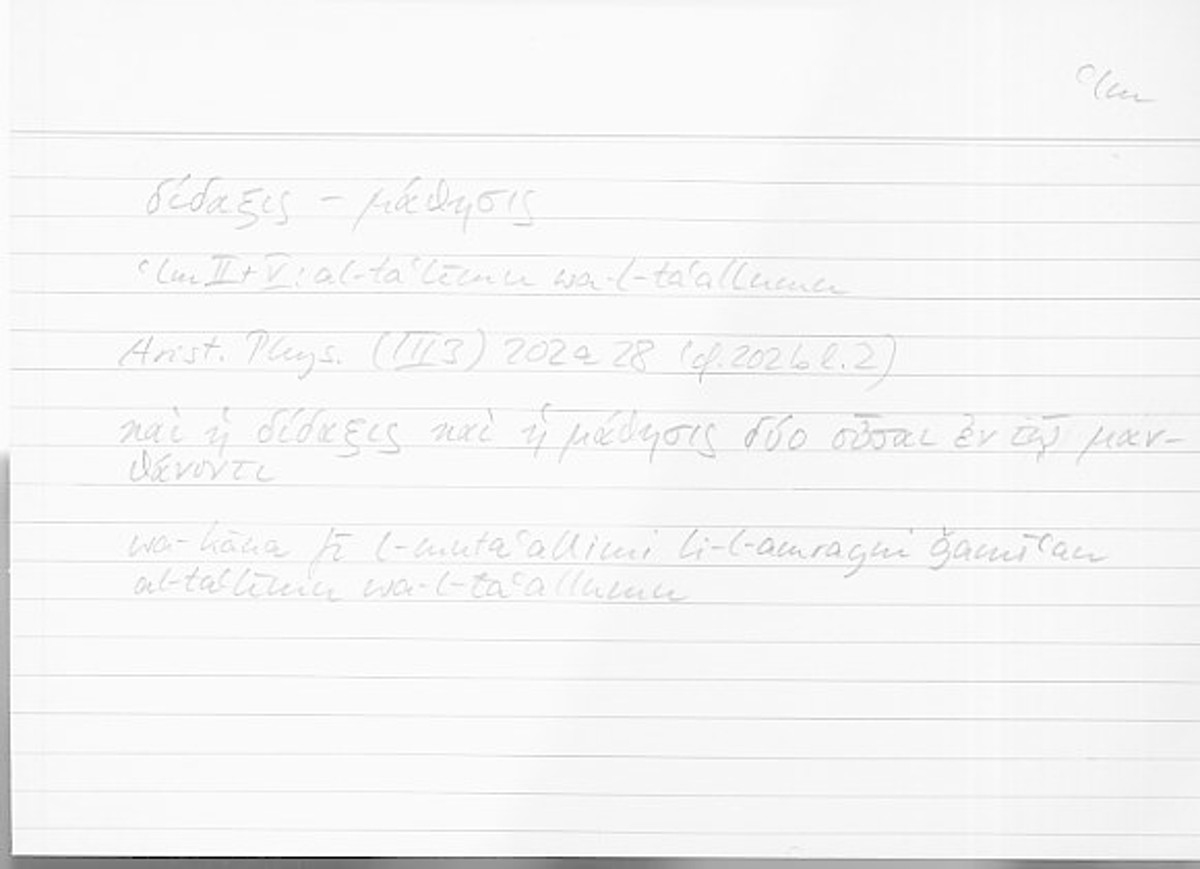 ʿlm
δίδαξις – μάθησις
ʿlm II + V: al-taʿlīmu wa-l-taʿallumu
Arist. Phys. (III 3) 202a 28 (cf. 202b l. 2)
καὶ ἡ δίδαξις καὶ ἡ μάθησις δύο οὖσαι ἐν τῷ μαν-
θάνοντι
wa-kāna fī l-mutaʿallimi li-l-amrayni ǧamīʿan
al-taʿlīmu wa-l-taʿallumu